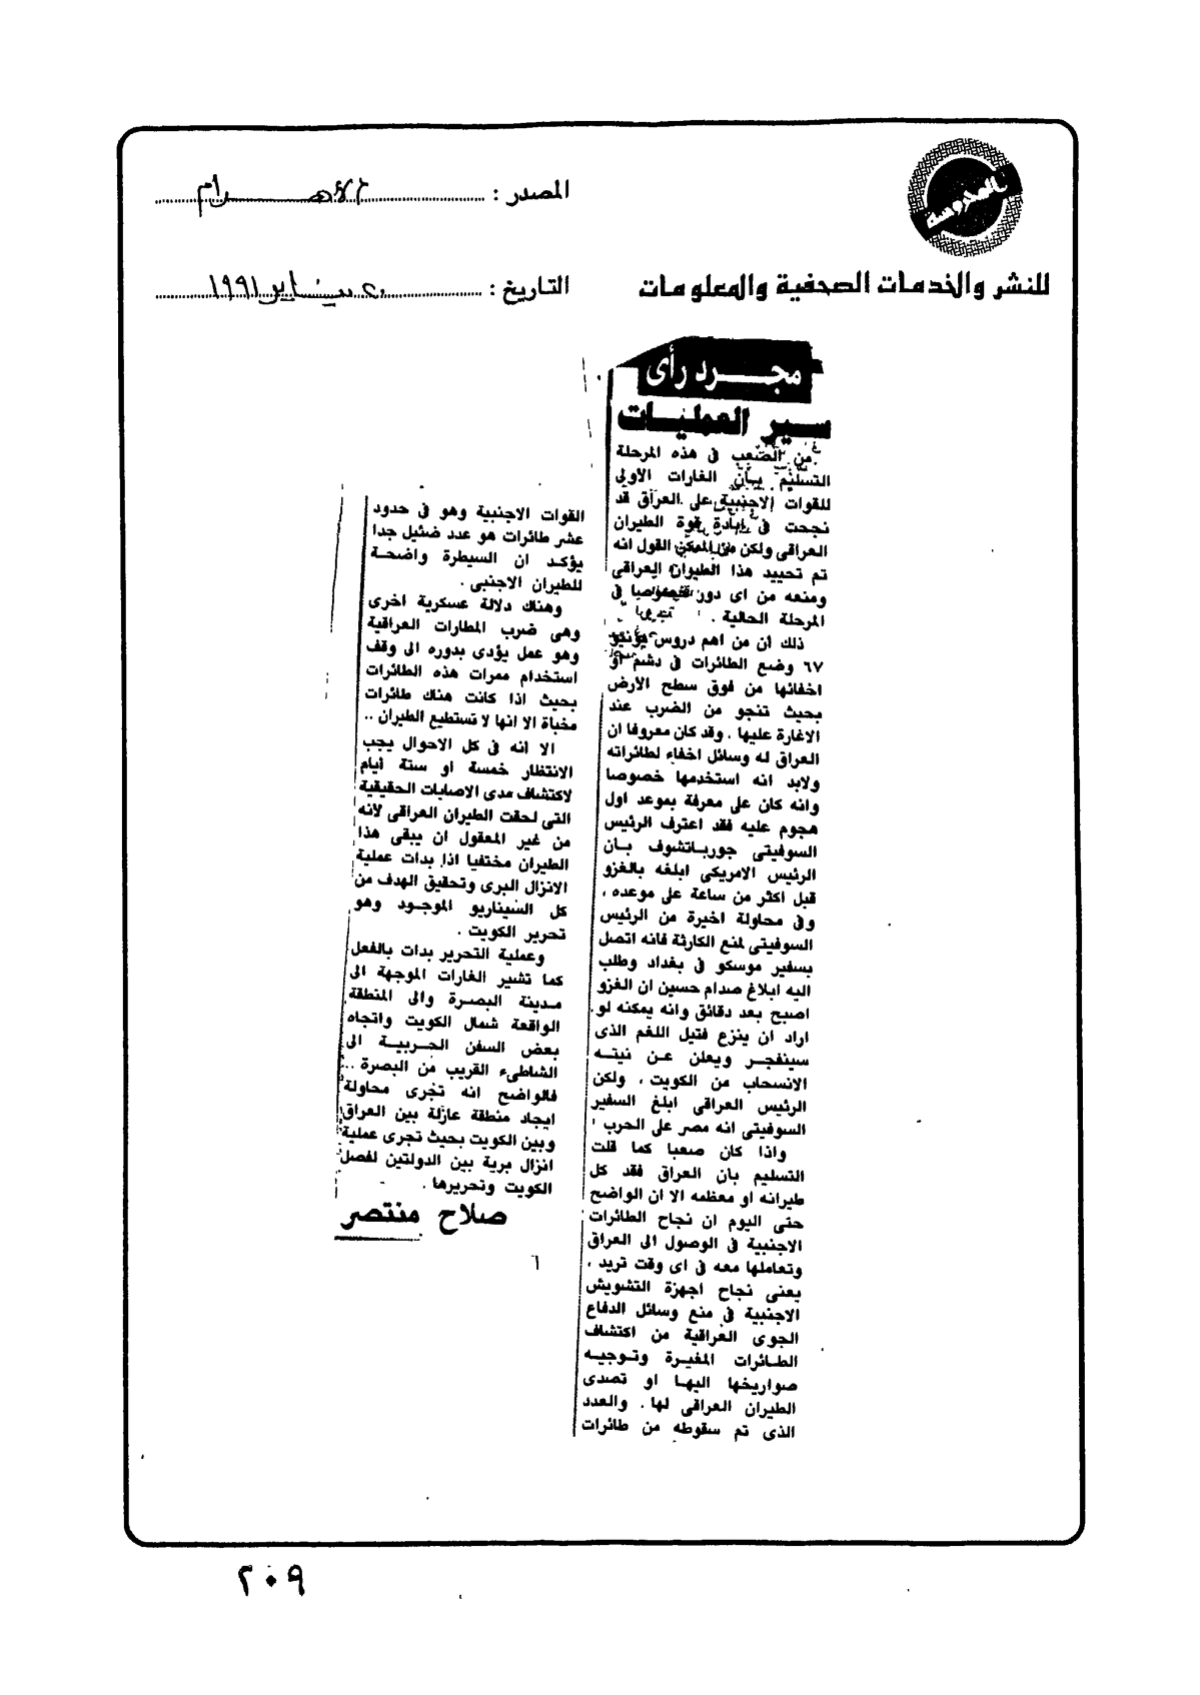 المحروسة
للنشر والخدمات الصحفية والمعلومات
المصدر : الأهرام
التاريخ : ٢٠ يناير ١٩٩١
مجرد رأى
سير العمليات
من الصعب فى هذه المرحلة
التسليم بأن الغارات الاولى
للقوات الاجنبية على العراق قد
نجحت فى ابادة قوة الطيران
العراقى ولكن من الممكن القول انه
تم تحييد هذا الطيران العراقى
ومنعه من اى دور خصوصيا فى
المرحلة الحالية .
ذلك ان من اهم دروس يونيو
٦٧ وضع الطائرات فى دشم او
اخفائها من فوق سطح الارض
بحيث تنجو من الضرب عند
الاغارة عليها . وقد كان معروفا ان
العراق له وسائل اخفاء لطائراته
ولابد انه استخدمها خصوصا
وانه كان على معرفة بموعد اول
هجوم عليه فقد اعترف الرئيس
السوفيتى جورباتشوف بان
الرئيس الامريكى ابلغه بالغزو
قبل اكثر من ساعة على موعده ،
وفى محاولة اخيرة من الرئيس
السوفيتى لمنع الكارثة فانه اتصل
بسفير موسكو فى بغداد وطلب
اليه ابلاغ صدام حسين ان الغزو
اصبح بعد دقائق وانه يمكنه لو
اراد ان ينزع فتيل اللغم الذى
سينفجر ويعلن عن نيته
الانسحاب من الكويت ، ولكن
الرئيس العراقى ابلغ السفير
السوفيتى انه مصر على الحرب !
واذا كان صعبا كما قلت
التسليم بان العراق فقد كل
طيرانه او معظمه الا ان الواضح
حتى اليوم ان نجاح الطائرات
الاجنبية فى الوصول الى العراق
وتعاملها معه فى اى وقت تريد ،
يعنى نجاح اجهزة التشويش
الاجنبية فى منع وسائل الدفاع
الجوى العراقية من اكتشاف
الطائرات المغيرة وتوجيه
صواريخها اليها او تصدى
الطيران العراقى لها . والعدد
الذى تم سقوطه من طائرات
القوات الاجنبية وهو فى حدود
عشر طائرات هو عدد ضئيل جدا
يؤكد ان السيطرة واضحة
للطيران الاجنبى .
وهناك دلالة عسكرية اخرى
وهى ضرب المطارات العراقية
وهو عمل يؤدى بدوره الى وقف
استخدام ممرات هذه الطائرات
بحيث اذا كانت هناك طائرات
مخبأة الا انها لا تستطيع الطيران ..
الا انه فى كل الاحوال يجب
الانتظار خمسة او ستة أيام
لاكتشاف مدى الاصابات الحقيقية
التى لحقت الطيران العراقى لانه
من غير المعقول ان يبقى هذا
الطيران مختفيا اذا بدات عملية
الانزال البرى وتحقيق الهدف من
كل السيناريو الموجود وهو
تحرير الكويت .
وعملية التحرير بدات بالفعل
كما تشير الغارات الموجهة الى
مدينة البصرة والى المنطقة
الواقعة شمال الكويت واتجاه
بعض السفن الحربية الى
الشاطىء القريب من البصرة ..
فالواضح انه تجرى محاولة
ايجاد منطقة عازلة بين العراق
وبين الكويت بحيث تجرى عملية
انزال برية بين الدولتين لفصل
الكويت وتحريرها .
صلاح منتصر
٦
٢٠٩